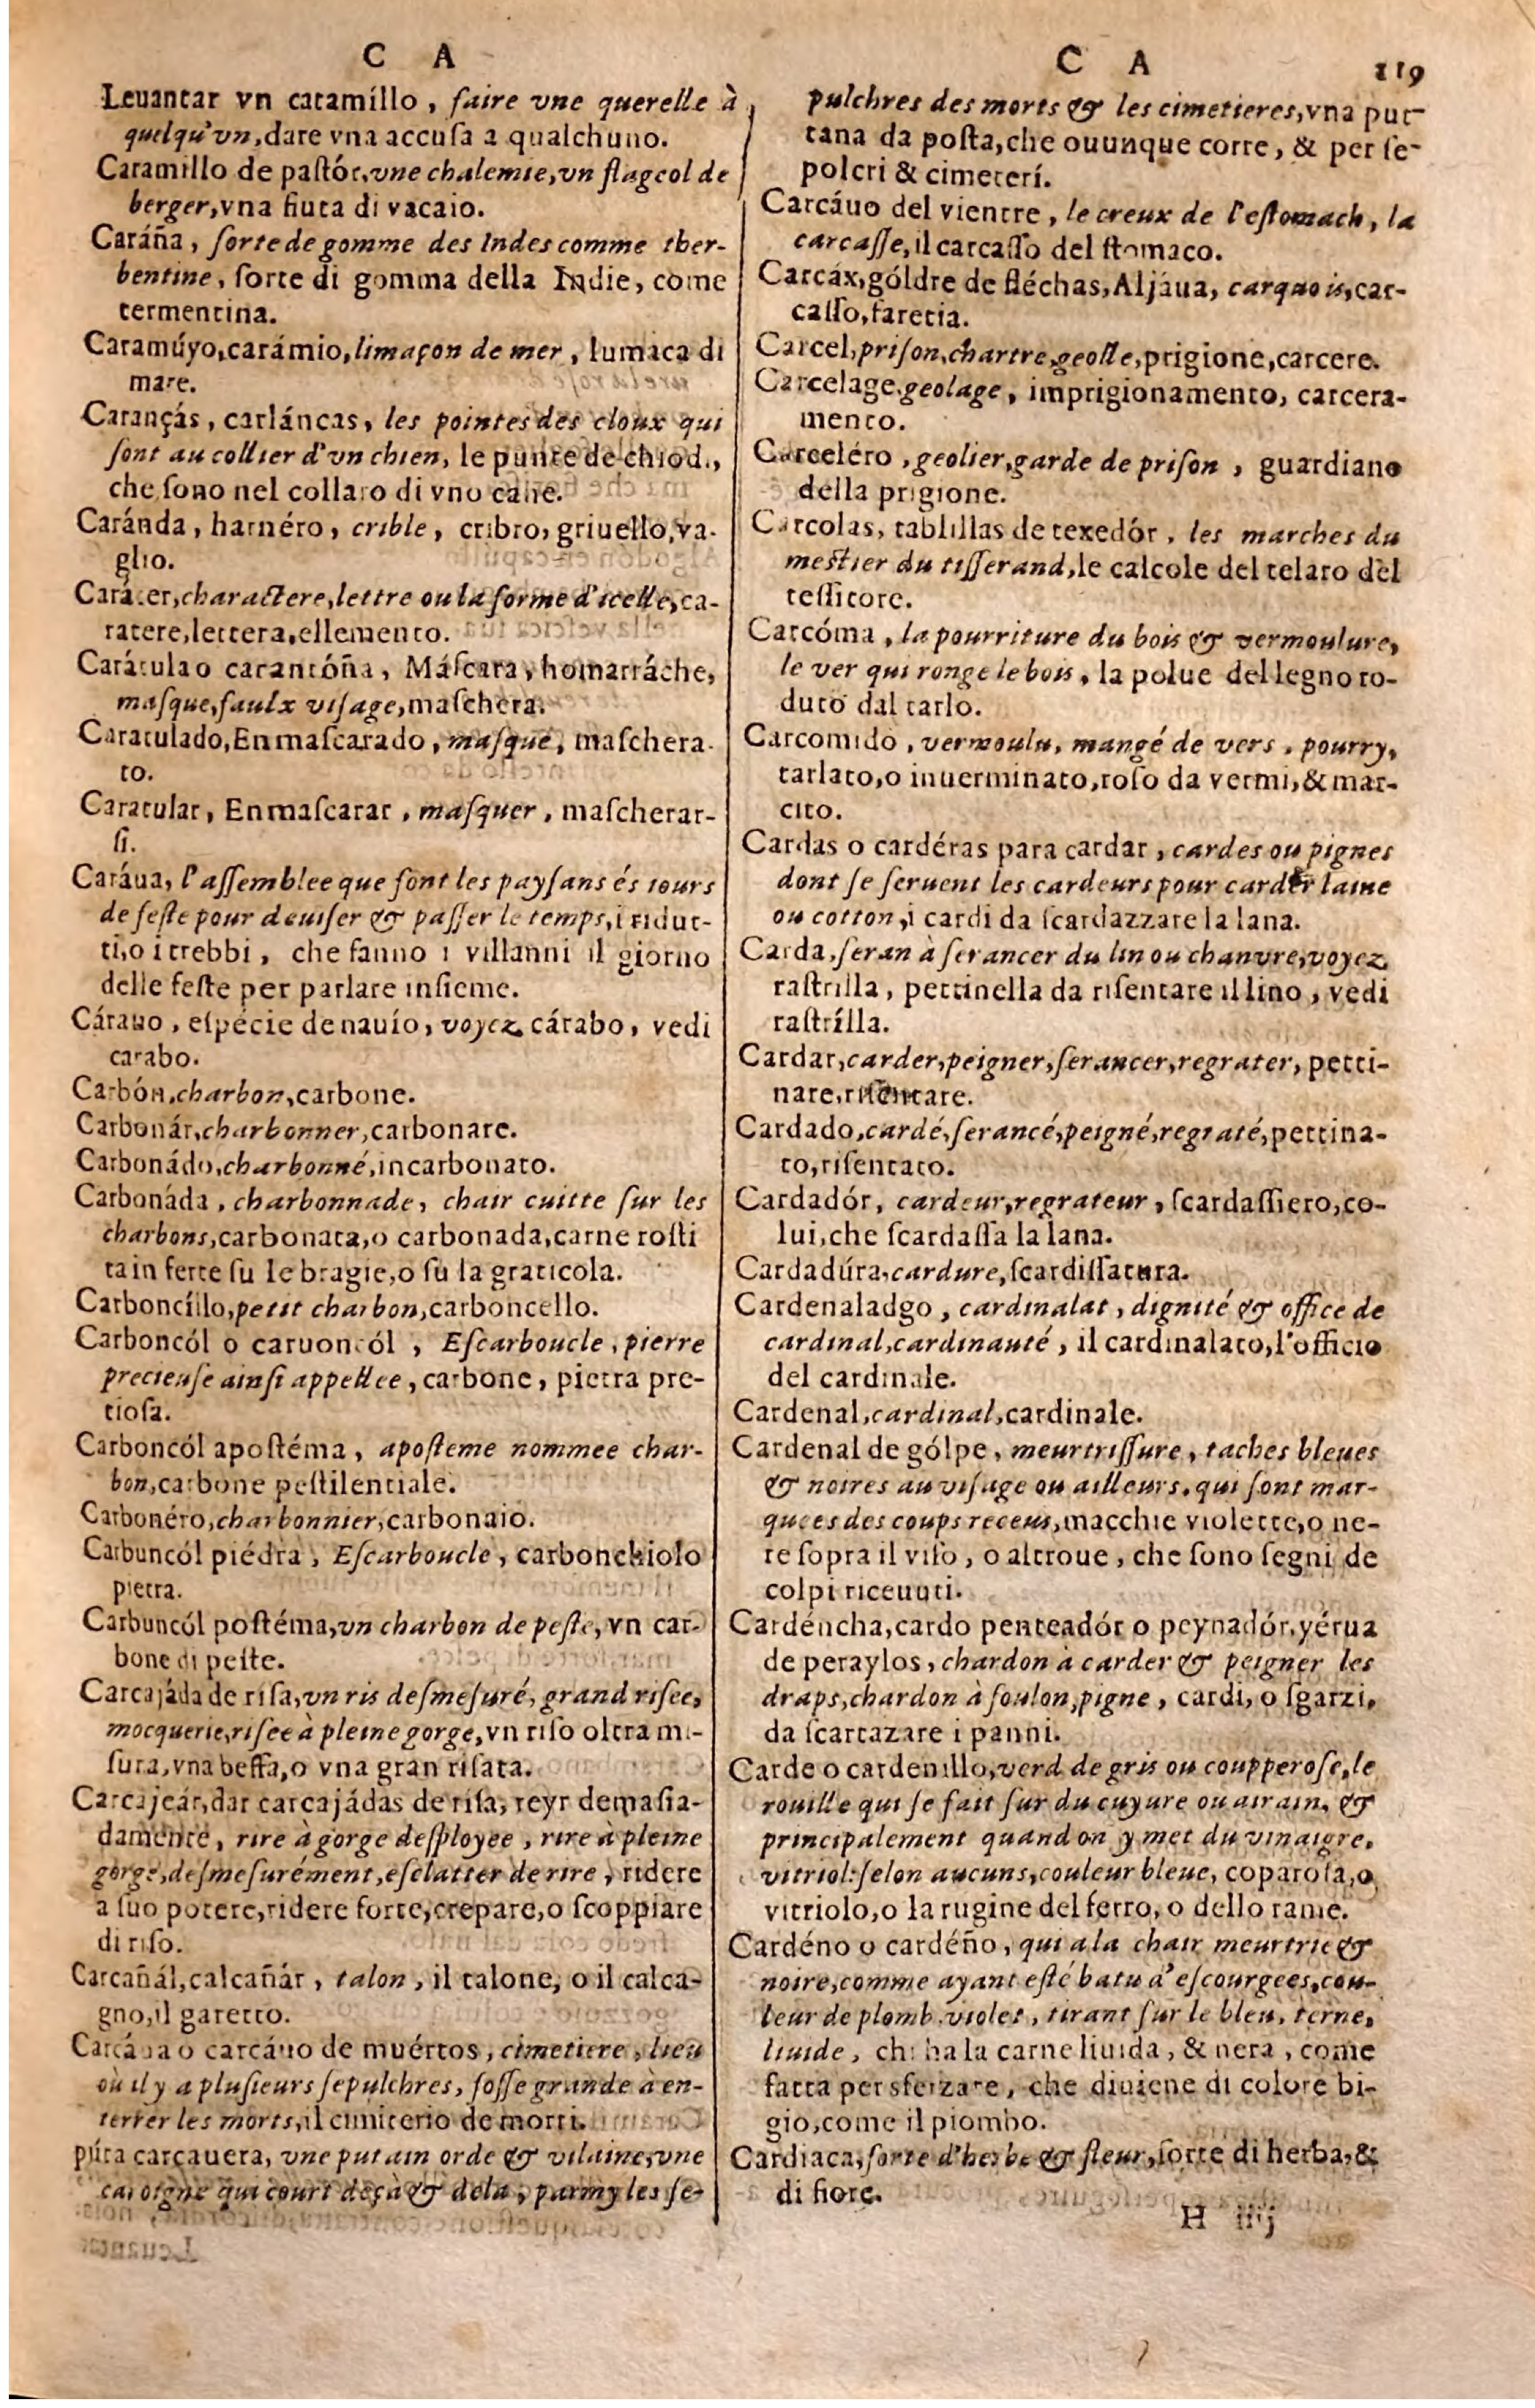 C A
Leuantar vn caramíllo, faire vne querelle à
quelqu'vn, dare vna accuſa a qualchuno.
Caramillo de paſtór, vne chalemie, vn flageol de
berger, vna fiuta di vacaio.
Caráña, ſorte de gomme des Indes comme ther-
bentine, ſorte di gomma della Indie, come
termentina.
Caramúyo, carámio, limaçon de mer, lumaca di
mare.
Carançás, carláncas, les pointes des cloux qui
ſont au collier d'vn chien, le punte de chiod.,
che ſono nel collaro di vno cane.
Caránda, harnéro, crible, cribro, griuello, va-
glio.
Carácter, charactere, lettre ou la forme d'icelle, ca-
ratere, lettera, ellemento.
Carátula o carantóña, Máſcara, homarráche,
maſque, faulx viſage, maſchera.
Caratulado, Enmaſcarado, maſqué, maſchera-
to.
Caratular, Enmaſcarar, maſquer, maſcherar-
ſi.
Caráua, l'aſſemblee que font les payſans és iours
de feſte pour deuiſer & paſſer le temps, i ridut-
ti, o i trebbi, che fanno i villanni il giorno
delle feſte per parlare inſieme.
Cárauo, eſpécie de nauío, voyez cárabo, vedi
carabo.
Carbón, charbon, carbone.
Carbonár, charbonner, carbonare.
Carbonádo, charbonné, incarbonato.
Carbonáda, charbonnade, chair cuitte ſur les
charbons, carbonata, o carbonada, carne roſti
ta in ferte ſu le bragie, o ſu la graticola.
Carboncíllo, petit charbon, carboncello.
Carboncól o caruoncól, Eſcarboucle, pierre
precieuſe ainſi appellee, carbone, pietra pre-
tioſa.
Carboncól apoſtéma, apoſteme nommee char-
bon, carbone peſtilentiale.
Carbonéro, charbonnier, carbonaio.
Carbuncól piédra, Eſcarboucle, carbonchiolo
pietra.
Carbuncól poſtéma, vn charbon de peſte, vn car-
bone di peſte.
Carcajáda de riſa, vn ris deſmeſuré, grand riſee,
mocquerie, riſee à pleine gorge, vn riſo oltra mi-
ſura, vna beffa, o vna gran riſata.
Carcajeár, dar carcajádas de riſa, reyr demaſia-
damente, rire à gorge deſployee, rire à pleine
gorge, deſmeſurément, eſclatter de rire, ridere
a ſuo potere, ridere forte, crepare, o ſcoppiare
di riſo.
Carcañál, calcañár, talon, il talone, o il calca-
gno, il garetto.
Carcáua o carcáuo de muértos, cimetiere, lieu
où il y a pluſieurs ſepulchres, foſſe grande à en-
terrer les morts, il cimiterio de morti.
púta carcauera, vne putain orde & vilaine, vne
caroigne qui court deçà & dela, parmy les ſe-
C A 119
pulchres des morts & les cimetieres, vna put-
tana da poſta, che ouunque corre, & per ſe-
polcri & cimeterí.
Carcáuo del vientre, le creux de l'eſtomach, la
carcaſſe, il carcaſſo del ſtomaco.
Carcáx, góldre de fléchas, Aljáua, carquois, car-
caſſo, faretia.
Carcel, priſon, chartre, geolle, prigione, carcere.
Carcelage, geolage, imprigionamento, carcera-
mento.
Carceléro, geolier, garde de priſon, guardiano
della prigione.
Carcolas, tablíllas de texedór, les marches du
meſtier du tiſſerand, le calcole del telaro del
teſſitore.
Carcóma, la pourriture du bois & vermoulure,
le ver qui ronge le bois, la polue del legno ro-
duto dal tarlo.
Carcomido, vermoulu, mangé de vers, pourry,
tarlato, o inuerminato, roſo da vermi, & mar-
cito.
Cardas o cardéras para cardar, cardes ou pignes
dont ſe ſeruent les cardeurs pour carder laine
ou cotton, i cardi da ſcardazzare la lana.
Carda, ſeran à ſerancer du lin ou chanvre, voyez
raſtrilla, pettinella da riſentare il lino, vedi
raſtrílla.
Cardar, carder, peigner, ſerancer, regrater, petti-
nare, riſentare.
Cardado, cardé, ſerancé, peigné, regraté, pettina-
to, riſentato.
Cardadór, cardeur, regrateur, ſcardaſſiero, co-
lui, che ſcardaſſa la lana.
Cardadúra, cardure, ſcardiſſatura.
Cardenaladgo, cardinalat, dignité & office de
cardinal, cardinauté, il cardinalato, l'officio
del cardinale.
Cardenal, cardinal, cardinale.
Cardenal de gólpe, meurtriſſure, taches bleues
& noires au viſage ou ailleurs, qui ſont mar-
quees des coups receus, macchie violette, o ne-
re ſopra il viſo, o altroue, che ſono ſegni de
colpi riceuuti.
Cardéncha, cardo penteadór o peynadór, yérua
de peraylos, chardon à carder & peigner les
draps, chardon à foulon, pigne, cardi, o ſgarzi,
da ſcartazare i panni.
Carde o cardenillo, verd de gris ou coupperoſe, le
rouille qui ſe fait ſur du cuyure ou airain, &
principalement quand on y met du vinaigre,
vitriol: ſelon aucuns, couleur bleue, coparoſa, o
vitriolo, o la rugine del ferro, o dello rame.
Cardéno o cardéño, qui a la chair meurtrie &
noire, comme ayant eſté batu d'eſcourgees, cou-
leur de plomb, violet, tirant ſur le bleu, terne,
liuide, chi ha la carne liuida, & nera, come
fatta per sferzare, che diuiene di colore bi-
gio, come il piombo.
Cardiaca, ſorte d'herbe & fleur, ſorte di herba, &
di fiore.
H iiij